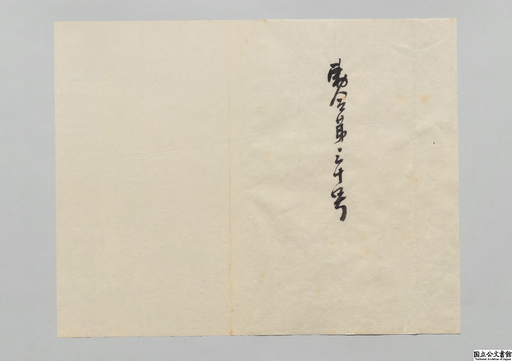 勅令第三十号
国立公文書館
National Archives of Japan